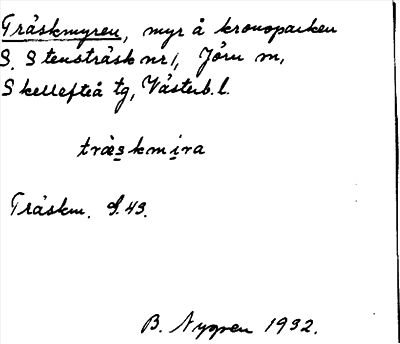 Träskmyren, myr å kronoparken
S. Stensträsk nr 1, Jörn sn,
Skellefteå tg, Västerb. l.
träskmira
Träskm. S.43.
B. Nygren 1932.